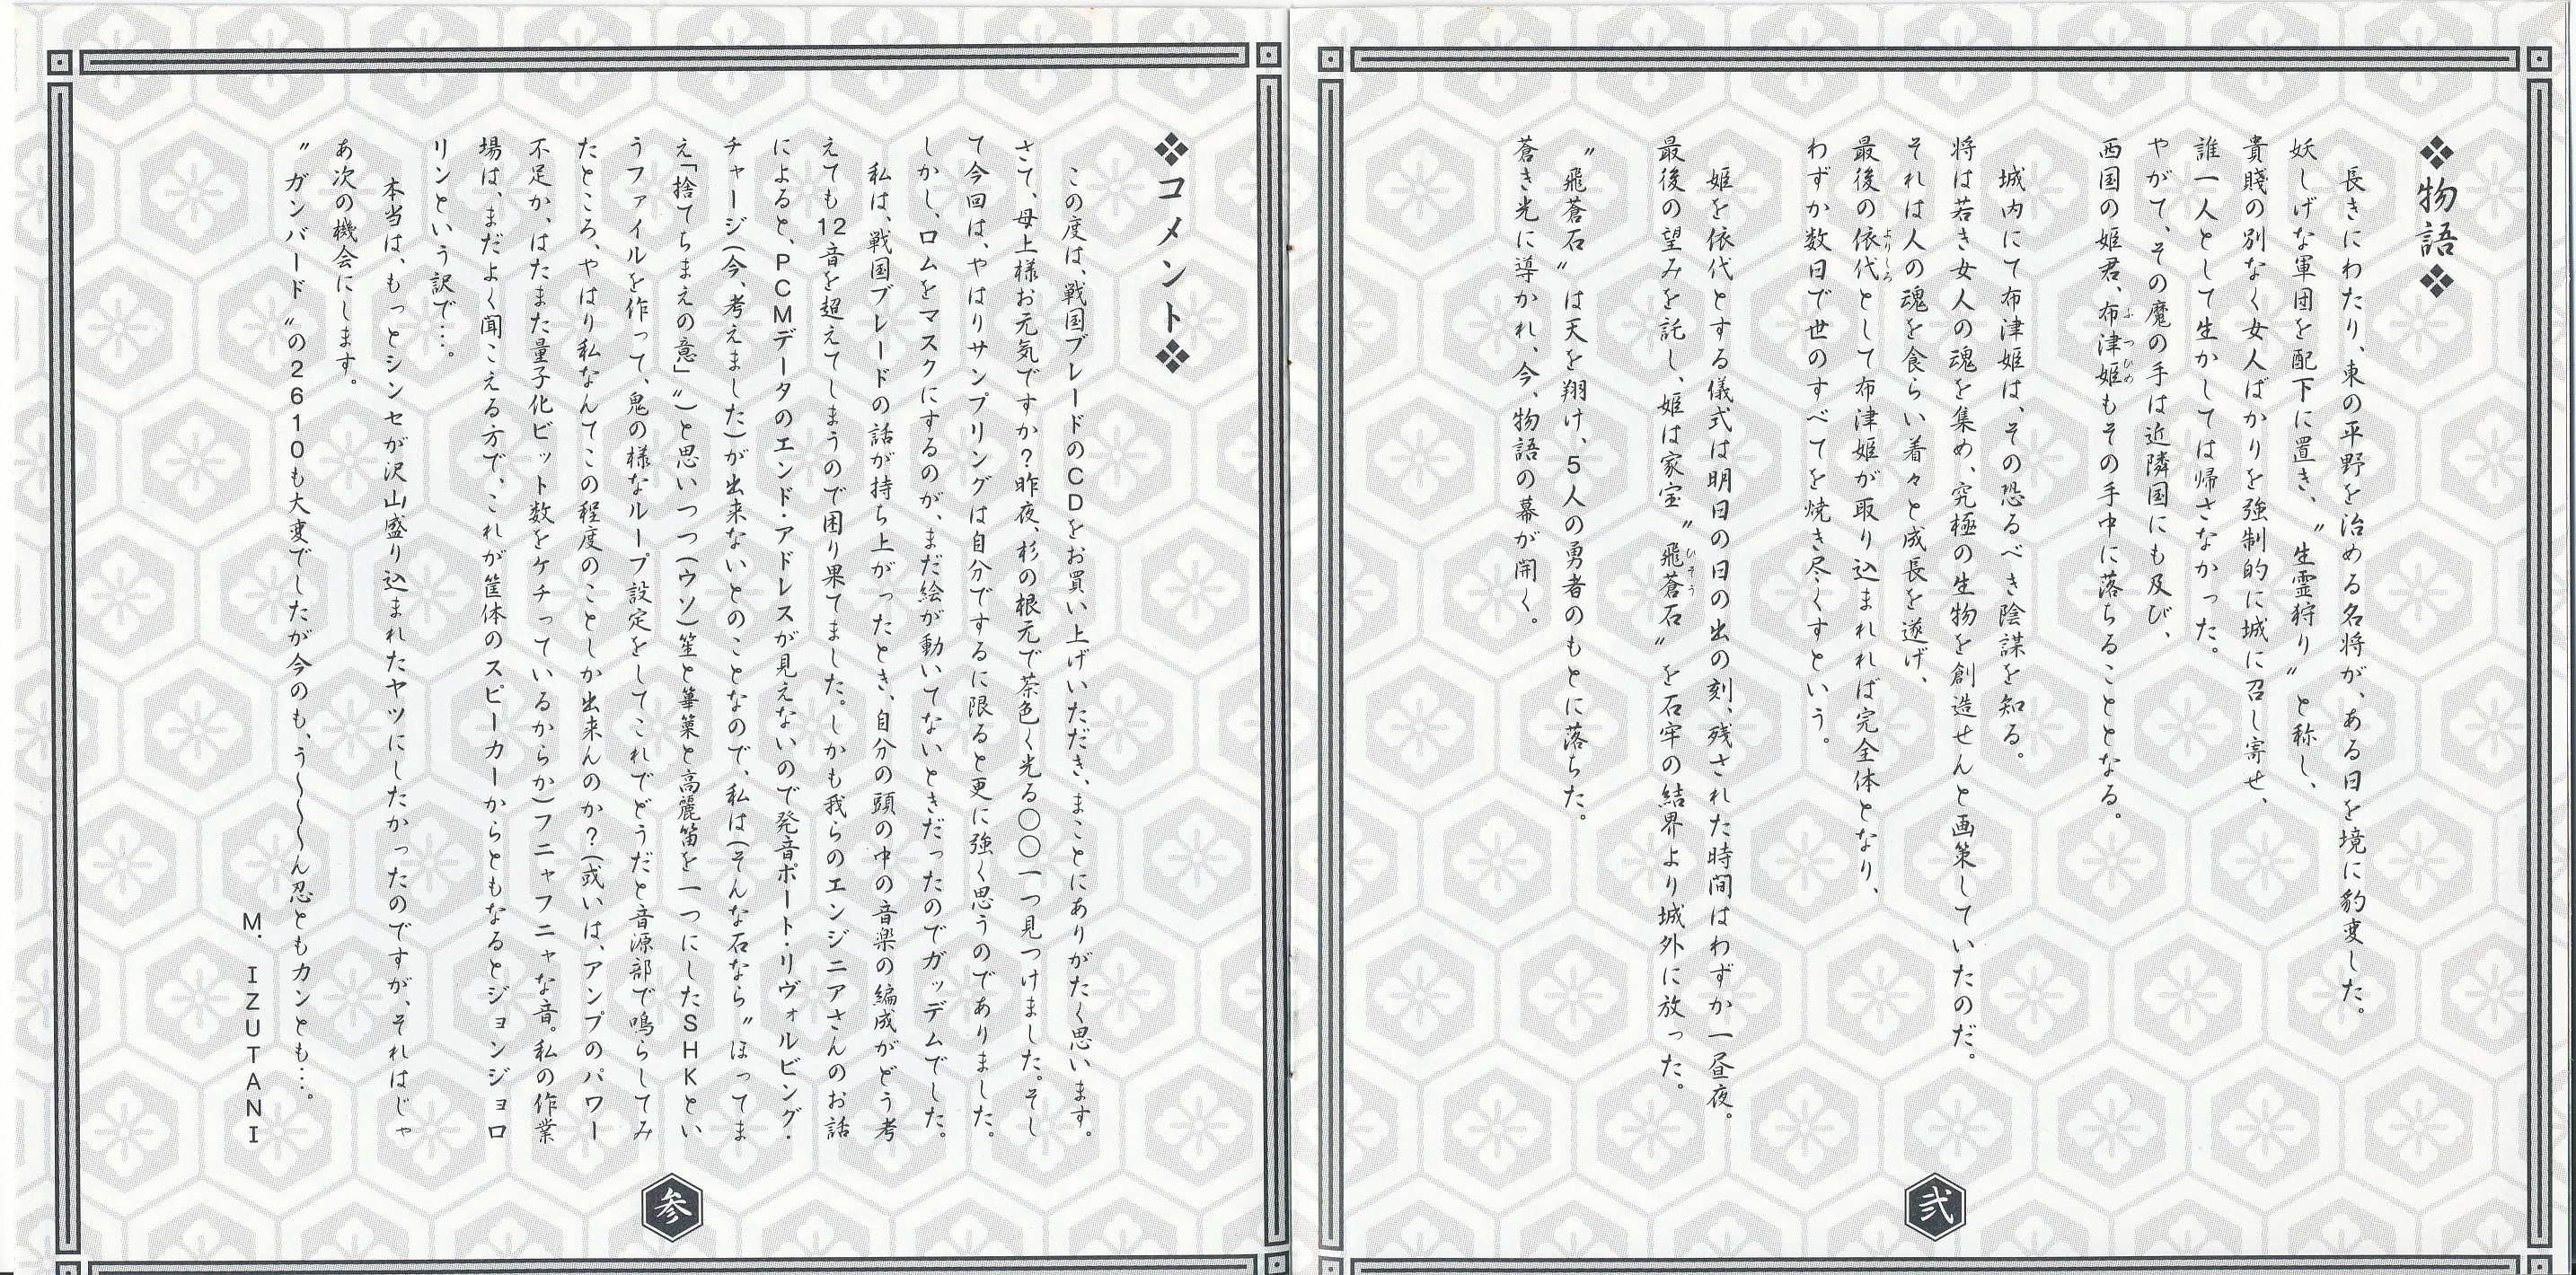 ❖物語❖
長きにわたり、東の平野を治める名将が、ある日を境に豹変した。
妖しげな軍団を配下に置き、〝生霊狩り〟と称し、
貴賤の別なく女人ばかりを強制的に城に召し寄せ、
誰一人として生かしては帰さなかった。
やがて、その魔の手は近隣国にも及び、
西国の姫君、布津姫もその手中に落ちることとなる。
ふつひめ
城内にて布津姫は、その恐るべき陰謀を知る。
将は若き女人の魂を集め、究極の生物を創造せんと画策していたのだ。
それは人の魂を食らい着々と成長を遂げ、
最後の依代として布津姫が取り込まれれば完全体となり、
よりしろ
わずか数日で世のすべてを焼き尽くすという。
姫を依代とする儀式は明日の日の出の刻、残された時間はわずか一昼夜。
最後の望みを託し、姫は家宝〝飛蒼石〟を石牢の結界より城外に放った。
ひそう
〝飛蒼石〟は天を翔け、5人の勇者のもとに落ちた。
蒼き光に導かれ、今、物語の幕が開く。
弐
❖コメント❖
この度は、戦国ブレードのCDをお買い上げいただき、まことにありがたく思います。
さて、母上様お元気ですか?昨夜、杉の根元で茶色く光る〇〇一つ見つけました。そし
て今回は、やはりサンプリングは自分でするに限ると更に強く思うのでありました。
しかし、ロムをマスクにするのが、まだ絵が動いてないときだったのでガッデムでした。
私は、戦国ブレードの話が持ち上がったとき、自分の頭の中の音楽の編成がどう考
えても12音を超えてしまうので困り果てました。しかも我らのエンジニアさんのお話
によると、PCMデータのエンド・アドレスが見えないので発音ポート・リヴォルビング・
チャージ(今、考えました)が出来ないとのことなので、私は(そんな石なら〝ほってま
え「捨てちまえの意」〟)と思いつつ(ウソ)笙と篳篥と高麗笛を一つにしたSHKとい
うファイルを作って、鬼の様なループ設定をしてこれでどうだと音源部で鳴らしてみ
たところ、やはり私なんてこの程度のことしか出来んのか?(或いは、アンプのパワー
不足か、はたまた量子化ビット数をケチっているからか)フニャフニャな音。私の作業
場は、まだよく聞こえる方で、これが筐体のスピーカーからともなるとジョンジョロ
リンという訳で…。
本当は、もっとシンセが沢山盛り込まれたヤツにしたかったのですが、それはじゃ
あ次の機会にします。
〝ガンバード〟の2610も大変でしたが今のも、う〜〜〜ん忍ともカンとも…。
M. IZUTANI
参